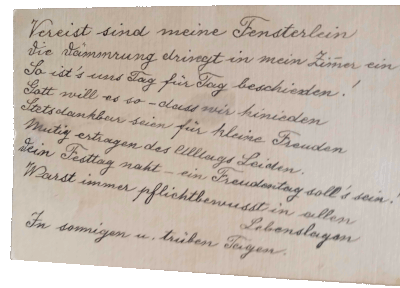 Vereist sind meine Fensterlein
die Dämmrung dringt in mein Zim̅er ein
So ist's uns Tag für Tag beschieden!
Gott will es so - dass wir hinieden
Stets dankbar seien für kleine Freuden
Mutig ertragen des Alltags Leiden.
Dein Festtag naht - ein Freudentag soll's sein!
Warst immer pflichtbewusst in allen
Lebenslagen
In sonnigen u. trüben Tagen.